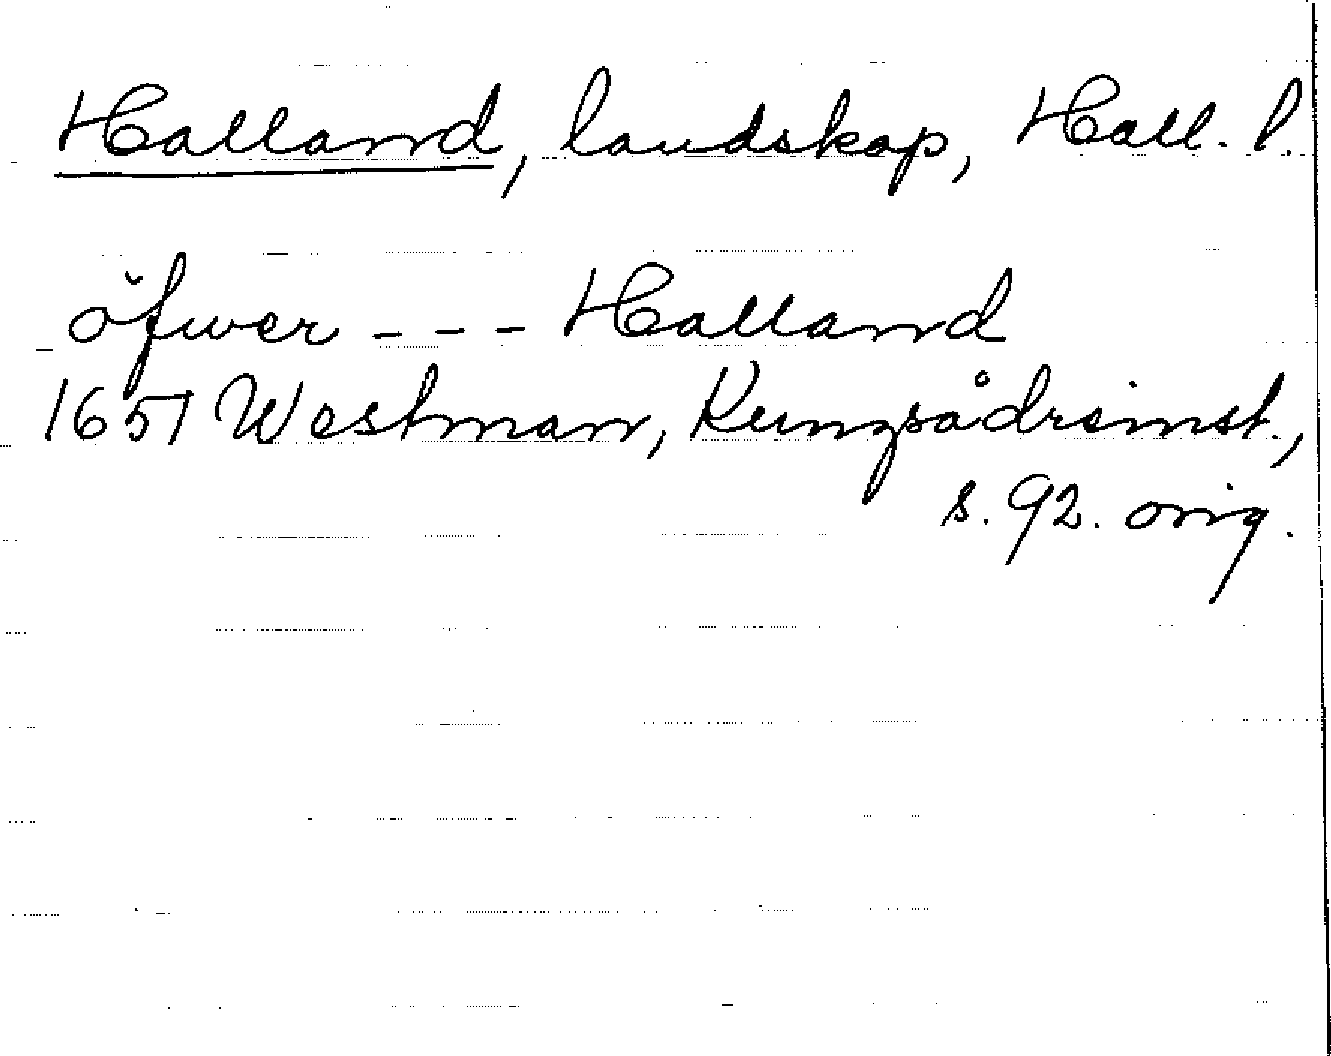 Halland, landskap, Hall. l.
öfwer - - - Halland
1651 Westman, Kungsådreinst.,
s. 92. orig.